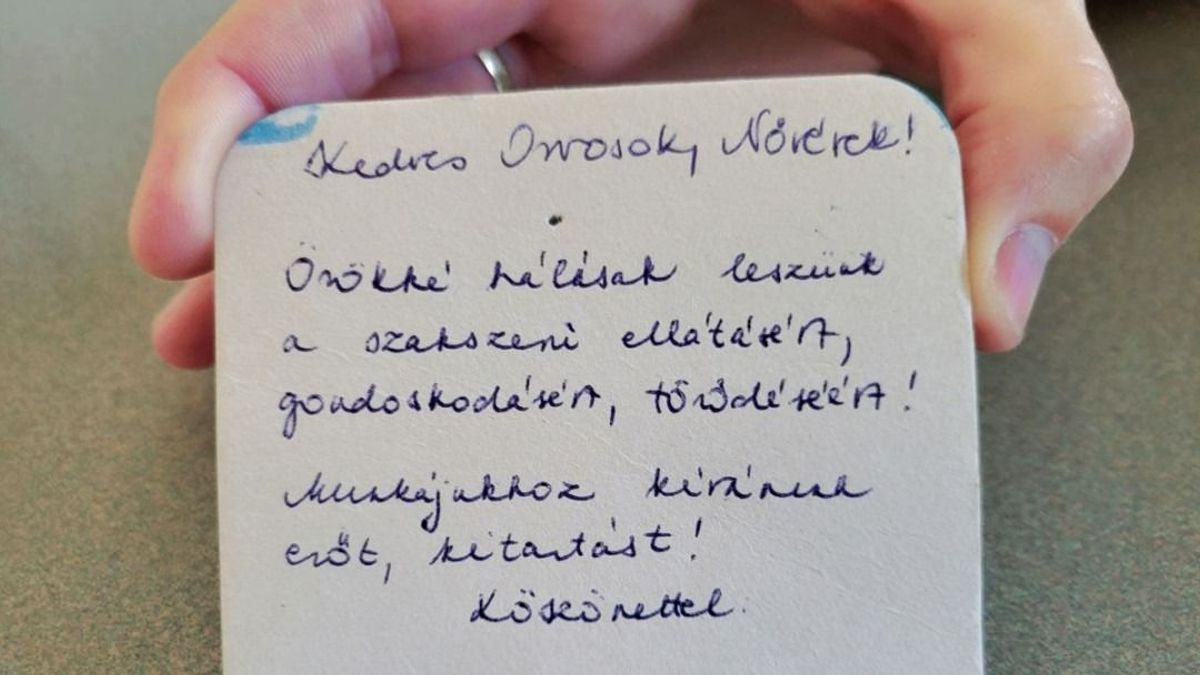 Kedves Orvosok, Nővérek!
Örökké hálásak leszünk
a szakszerű ellátásért,
gondoskodásért, törődéséért!
Munkájukhoz kívánunk
erőt, kitartást!
Köszönettel